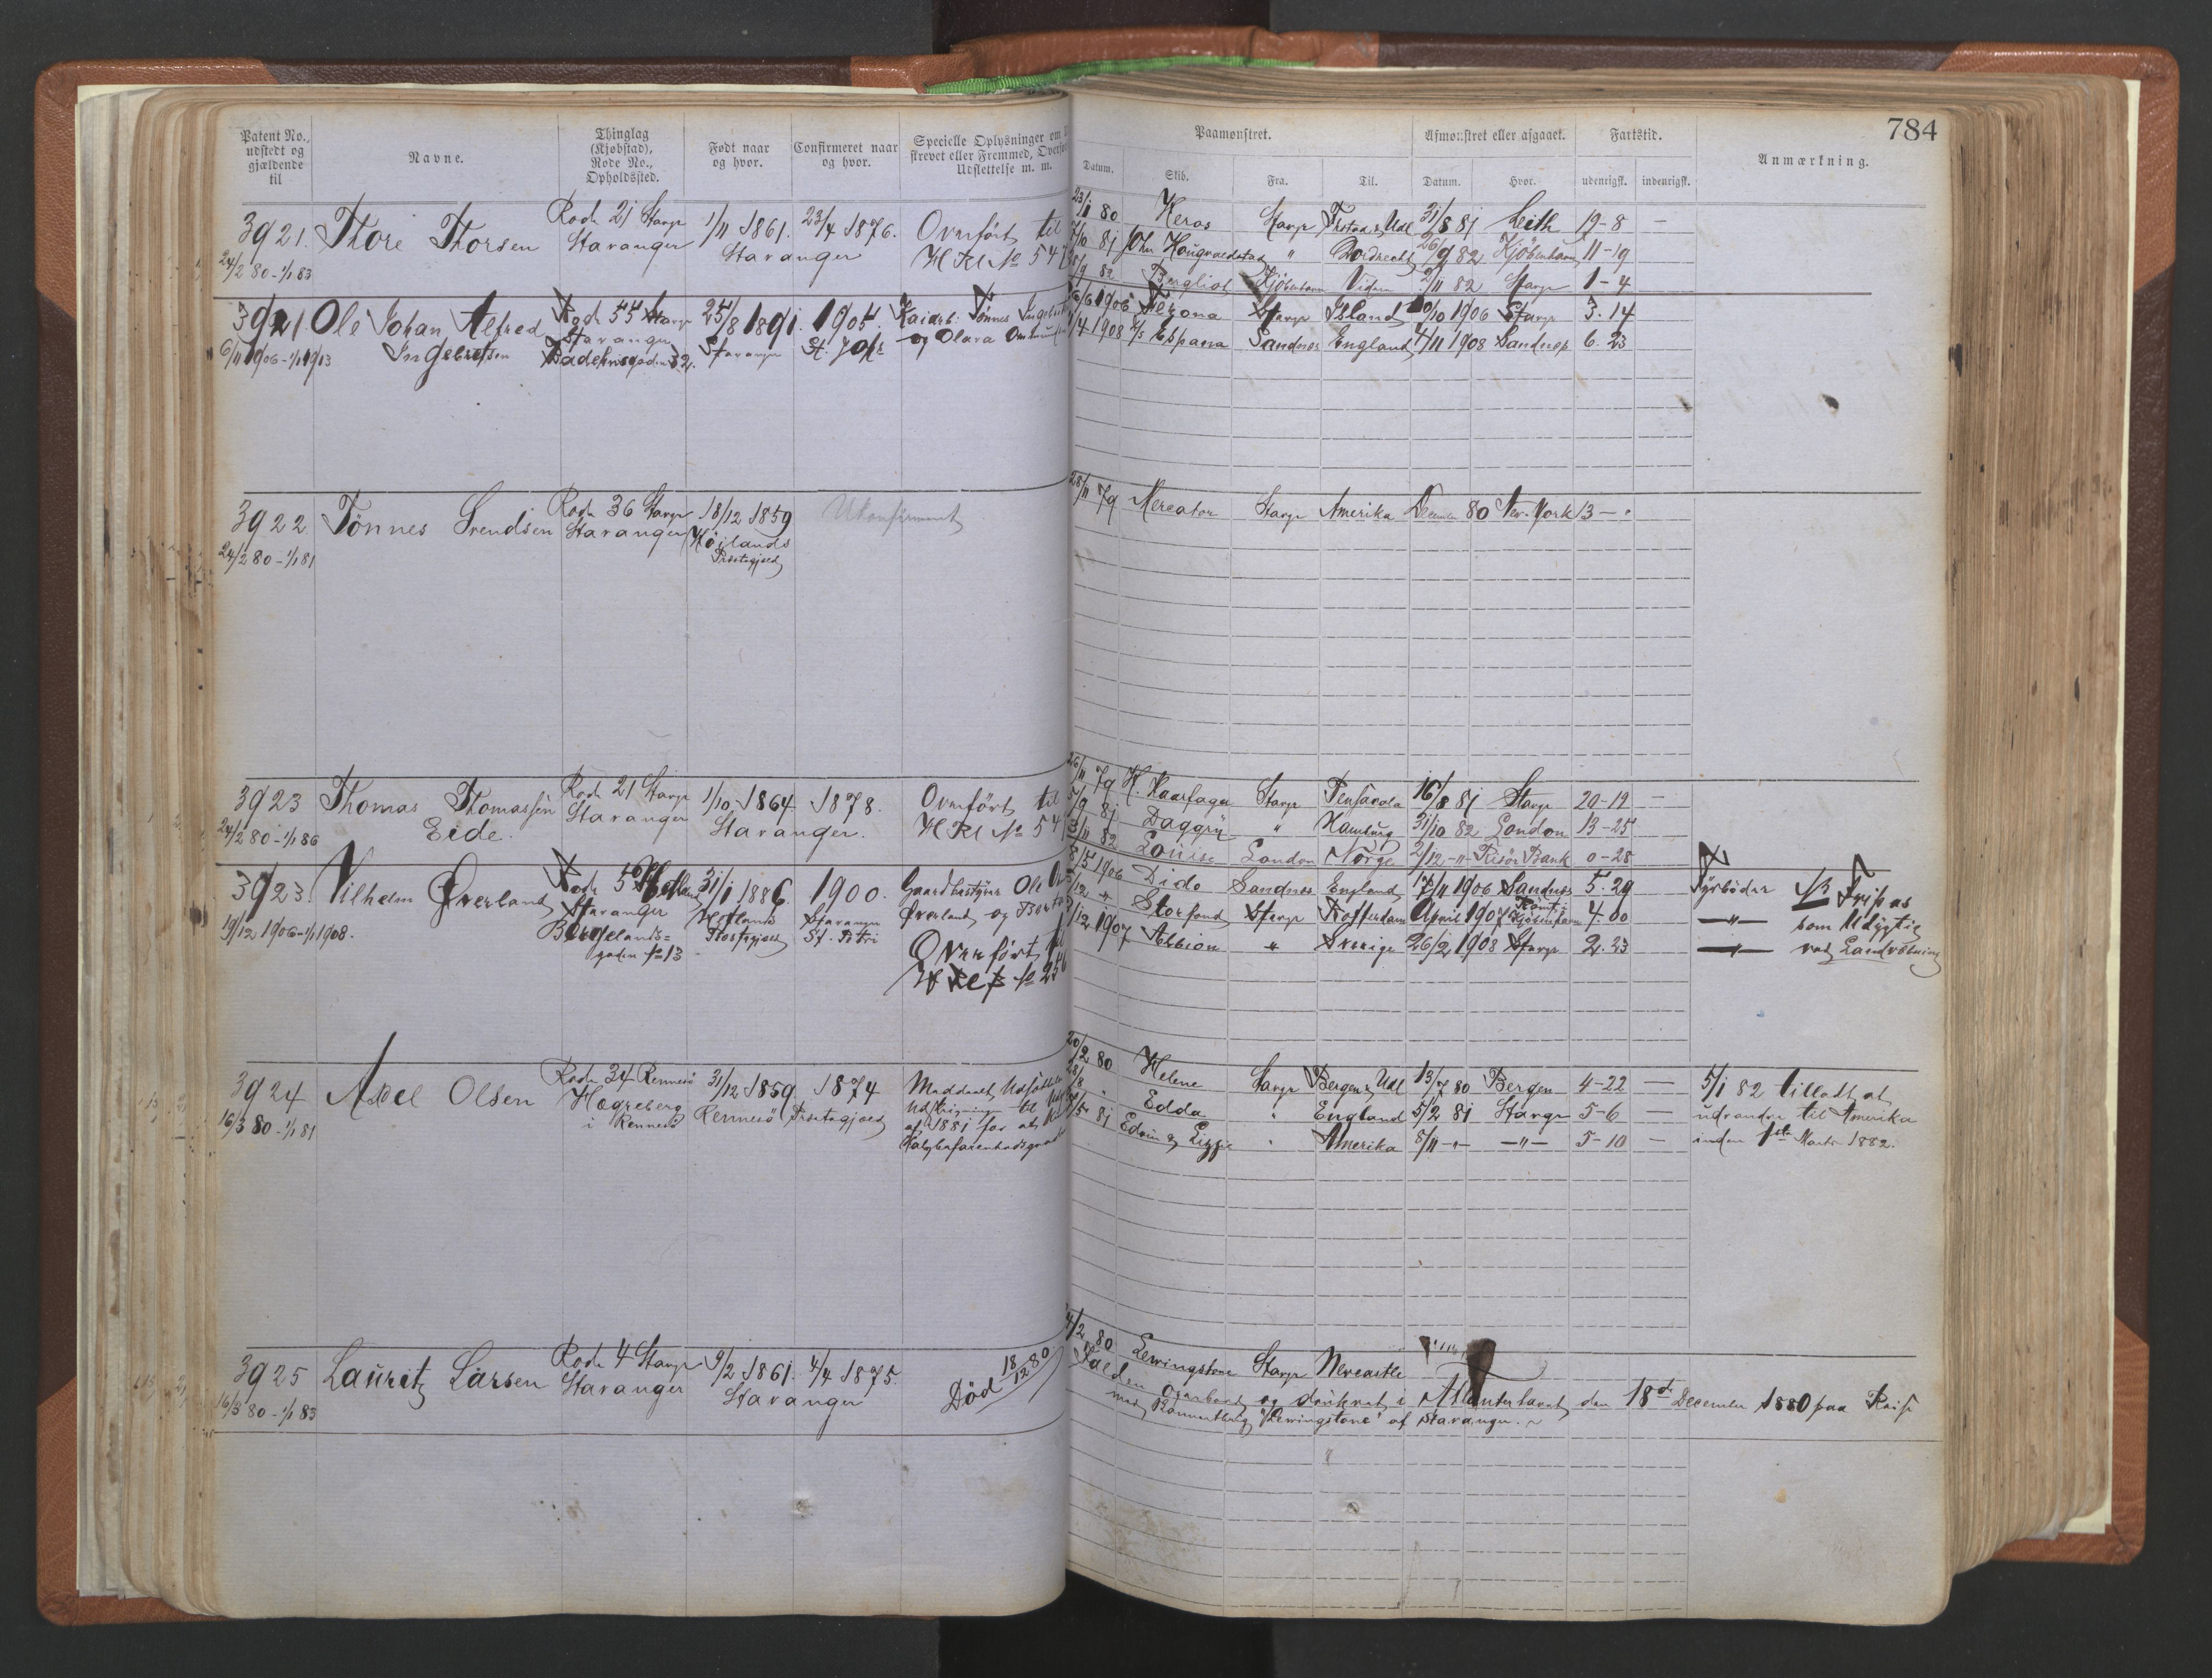 784
Patent No.,
udstedt og
gjældende
til
Navne.
Thinglag
(Kjøbstad),
Rode No.,
Opholdssted.
Født naar
og hvor.
Confirmeret naar
og hvor.
Specielle Oplysninger om
skrevet eller Fremmed,
Udslettelse m. m.
Paamønstret.
Afmønstret eller afgaaet.
Fartstid.
Anmærkning.
Datum.
Skib.
Fra.
Til.
Datum.
Hvor.
udenrigsk.
indenrigsk.
3921. Thore Thorsen Rode 21 Stavgr 1/11 1861. 23/4 1876. Overført til
24/2 80 - 1/1 83 Stavanger Stavanger
80 Keras Stavgr Udl 31/8 81 Leith 19-8 —
81 " Dordrecht 26/9 82 Kjøbenhavn 11-19
82 Kjøbenhavn 2/11 82 Stavgr 1-4
3921 Ole Johan Alfred Rode 55 Stavgr 25/8 1891. 1905. Tønnes
6/11 1906 - 1/1 1913 Ingebretsen Stavanger Stavanger St. og Olava
1906 Stavgr Island /10 1906 Stavgr 3.14
/4 1908 Espana Sandnes England 1908 Sandnes 6.23
3922. Tønnes Svendsen Rode 36 Stavgr 18/12 1859 Ukonfirmeret
24/2 80 - 1/1 81 Stavanger Høilands
Præstegjæld
28/11 79 Mercator Stavgr Amerika December 80 New-York 13 —
3923 Thomas Thomassen Rode 21 Stavgr 1/10 1864. 1878. Overført til
24/2 80 - 1/1 86 Eide. Stavanger Stavanger.
26/11 79 H. Haarfager Stavgr Pensacola 16/8 81 Stavgr 20-19 —
81 Daggry " Hamburg 31/10 82 London 13-25
82 Louise London Norge 2/12 -"- Risør Bank 0-28
3923. Vilhelm Øverland Rode 31/1 1886. 1900. Gaardbestyrer Ole
19/12 1906 - 1/1 1908. Stavanger Hetlands Stavanger Øverland og
Bergelands= Præstegjæld St. Petri
gaden No 13 Overført
8/5 1906 Dido Sandnes England 1906 Sandnes 5.29 Fyrbøder
" Storfond Stavgr Rotterdam April 1907 Kjøbenhavn 4.00 —"— som Udygtig
/12 1907 Albion " Sverige 26/2 1908 Stavgr 2.23 —"— ved Landvæbning
3924 Axel Olsen Rode 34 Rennesø 31/12 1859. 1874 Meddeelt Udsættelse
16/3 80 - 1/1 81 Hægreberg Rennesø Præstegjæld
i Rennesø af 1881 for at
20/2 80 Helene Stavgr Bergen & Udl 13/7 80 Bergen 4-22 — 5/1 82 tilladt at
Edda " England 5/2 81 Stavgr 5-6 — udvandre til Amerika
81 Edvin & Lizzie " Amerika 8/11 -"- —"— 5-10 — inden 1ste Marts 1882.
3925 Lauritz Larsen Rode 4 Stavgr 9/2 1861. 4/4 1875. Død 18/12 80
16/3 80 - 1/1 83 Stavanger Stavanger
80 Stavgr Newcastle
Falden overbord og druknet i Atlanterhavet den 18de December 1880 paa Reise
med af Stavanger.